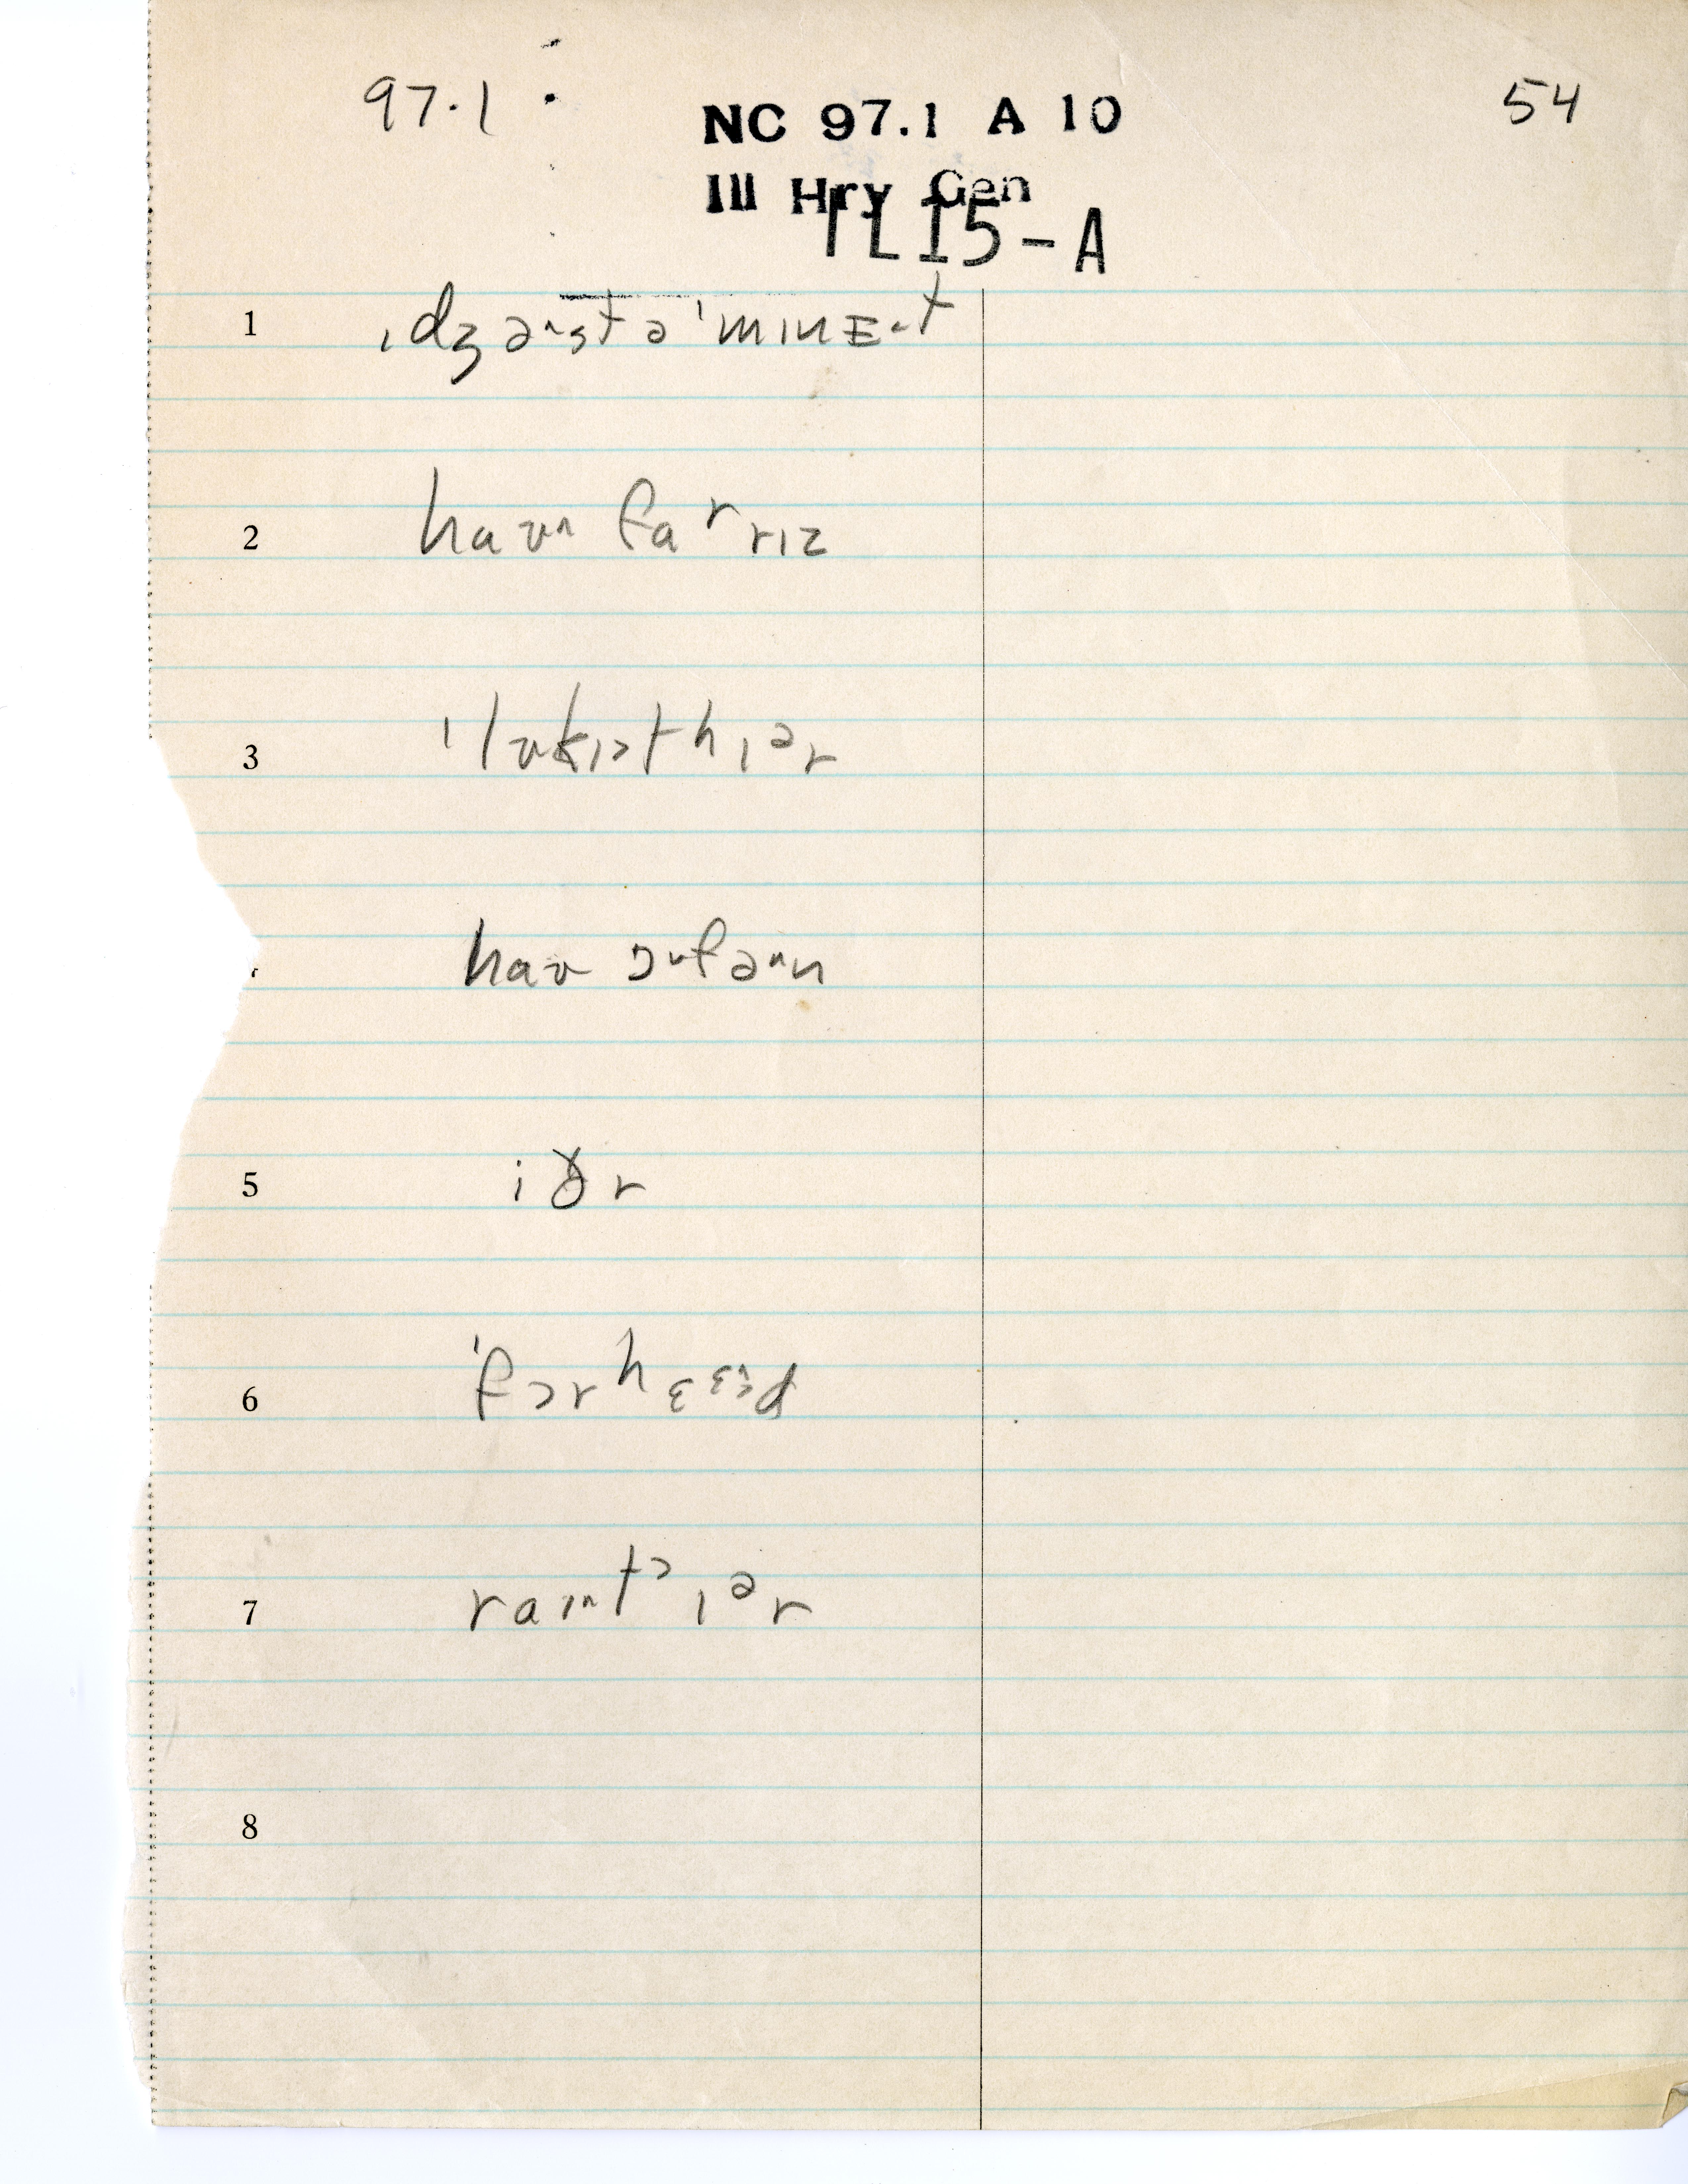 97.1
NC 97.1 A 10
54
Ill Hry Gen
IL15-A
1 ɪdʒəᶺstəˈmɪnɛᵊt
2 haʊᶺ faʳrɪz
3 ˈlʊkɪətʰɪᵊr
haʊ ɔᵛfəᶺn
5 iðr
6 ˈfɔrʰɛᵋᶾd
7 raɪᶺtᵓɪᵊr
8